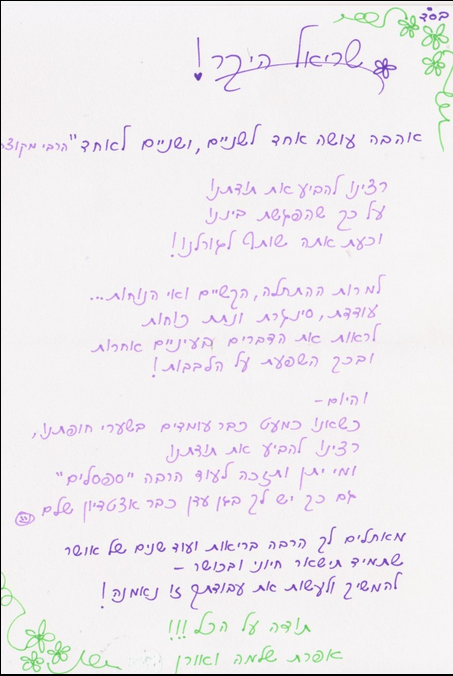 בס"ד
שריאל היקר!
אוהבה עושה אחד לשניים, ושניים לאחד" הרבי מקוצק
רצינו להביע את תודתנו
על כך שהפגשת ביננו
וכעת אתה שותף לגורלנו!
למרות ההתחלה, הקשיים ואי הנוחות...
עודדת, סינגרת ונתת כוחות
לראות את הדברים בעיניים אחרות
ובכך השפעת על הלבבות!
והיום-
כשאנו כמעט כבר עומדים בשערי חופתנו,
רצינו להביע את תודתנו
ומי יתן ותזכה לעוד הרבה "ספסלים"
גם כך יש לך בגן עדן כבר אצטדיון שלם
מאחלים לך הרבה בריאות ועוד שנים של אושר
שתמיד תישאר חיוני ובכושר -
להמשיך ולעשות את עבודתך זו נאמנה!
תודה על הכל!!!
אפרת שלמה ואורן